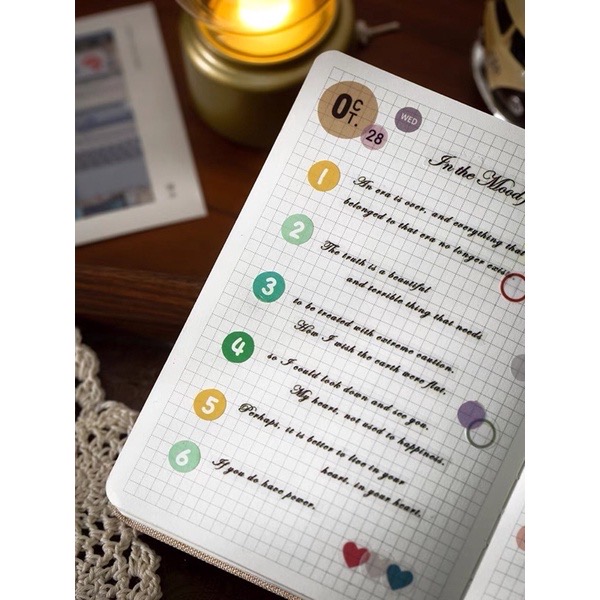 OCT.
WED
28
In the Mood
1
An era is over, and everything that
belonged to that era no longer exis
2
The truth is a beautiful
and terrible thing that needs
3
to be treated with extreme caution.
How I wish the earth were flat,
4
so I could look down and see you.
My heart, not used to happiness.
5
Perhaps, it is better to live in your
heart, in your heart.
6
If you do have power.